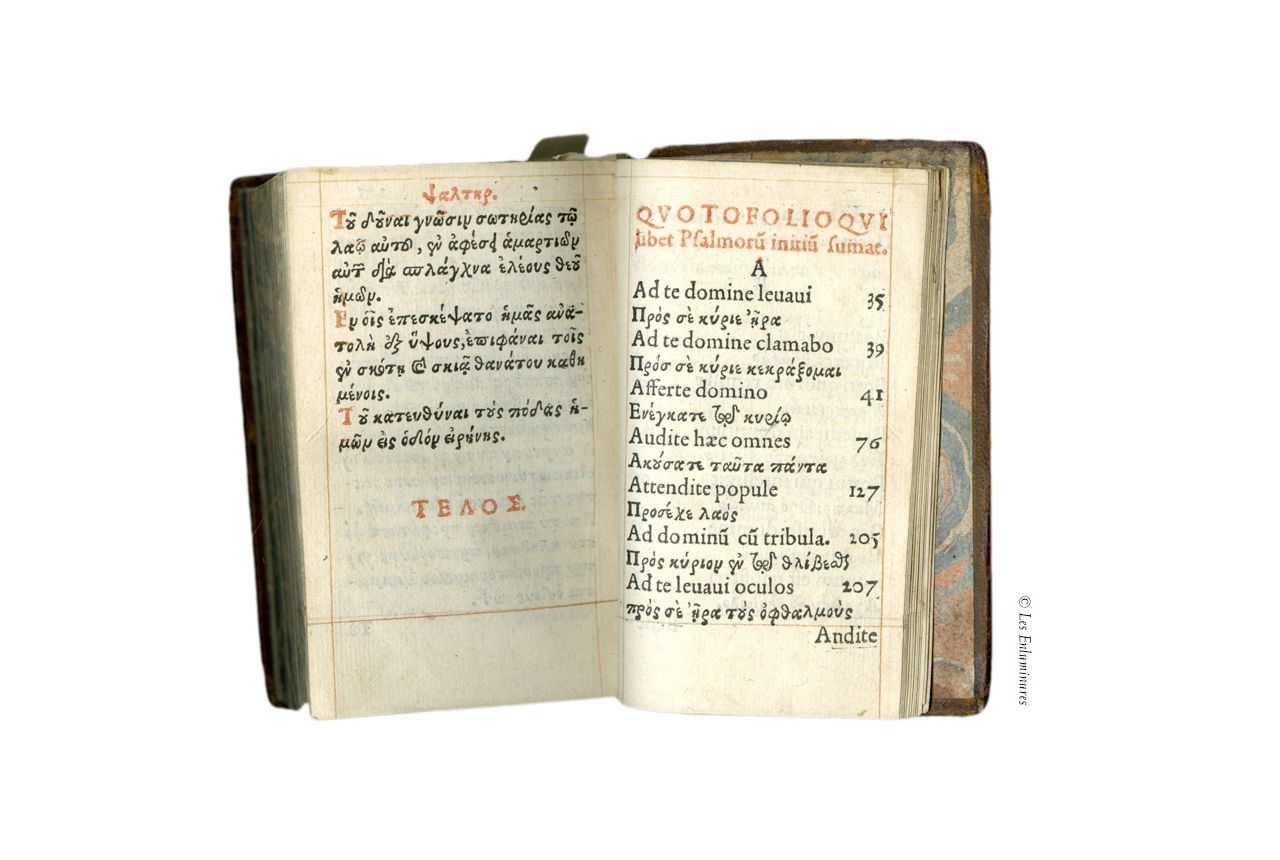 ψαλτηρ.
Τοῦ δοῦναι γνῶσιν σωτηρίας τῷ
λαῷ αὐτοῦ, ἐν ἀφέσει ἁμαρτιῶν
αὐτῶν διὰ σπλάγχνα ἐλέους θεοῦ
ἡμῶν.
Εν οἷς ἐπεσκέψατο ἡμᾶς ἀνα-
τολὴ ἐξ ὕψους, ἐπιφάναι τοῖς
ἐν σκότει καὶ σκιᾷ θανάτου καθη
μένοις.
Τοῦ κατευθύναι τοὺς πόδας ἡ-
μῶν εἰς ὁδὸν εἰρήνης.
ΤΕΛΟΣ.
QVOTOFOLIOQVI
libet Psalmorũ initiũ sumat.
A
Ad te domine leuaui 35
Πρός σὲ κύριε ἦρα
Ad te domine clamabo 39
Πρόσ σὲ κύριε κεκράξομαι
Afferte domino 41
Ενέγκατε τῷ κυρίῳ
Audite hæc omnes 76
Ακούσατε ταῦτα πάντα
Attendite popule 127
Προσέχε λαός
Ad dominũ cũ tribula. 205
Πρός κύριον ἐν τῷ θλίβεσθαι
Ad te leuaui oculos 207
πρὸς σὲ ἦρα τοὺς ὀφθαλμοὺς
Andite
© Les Enluminures